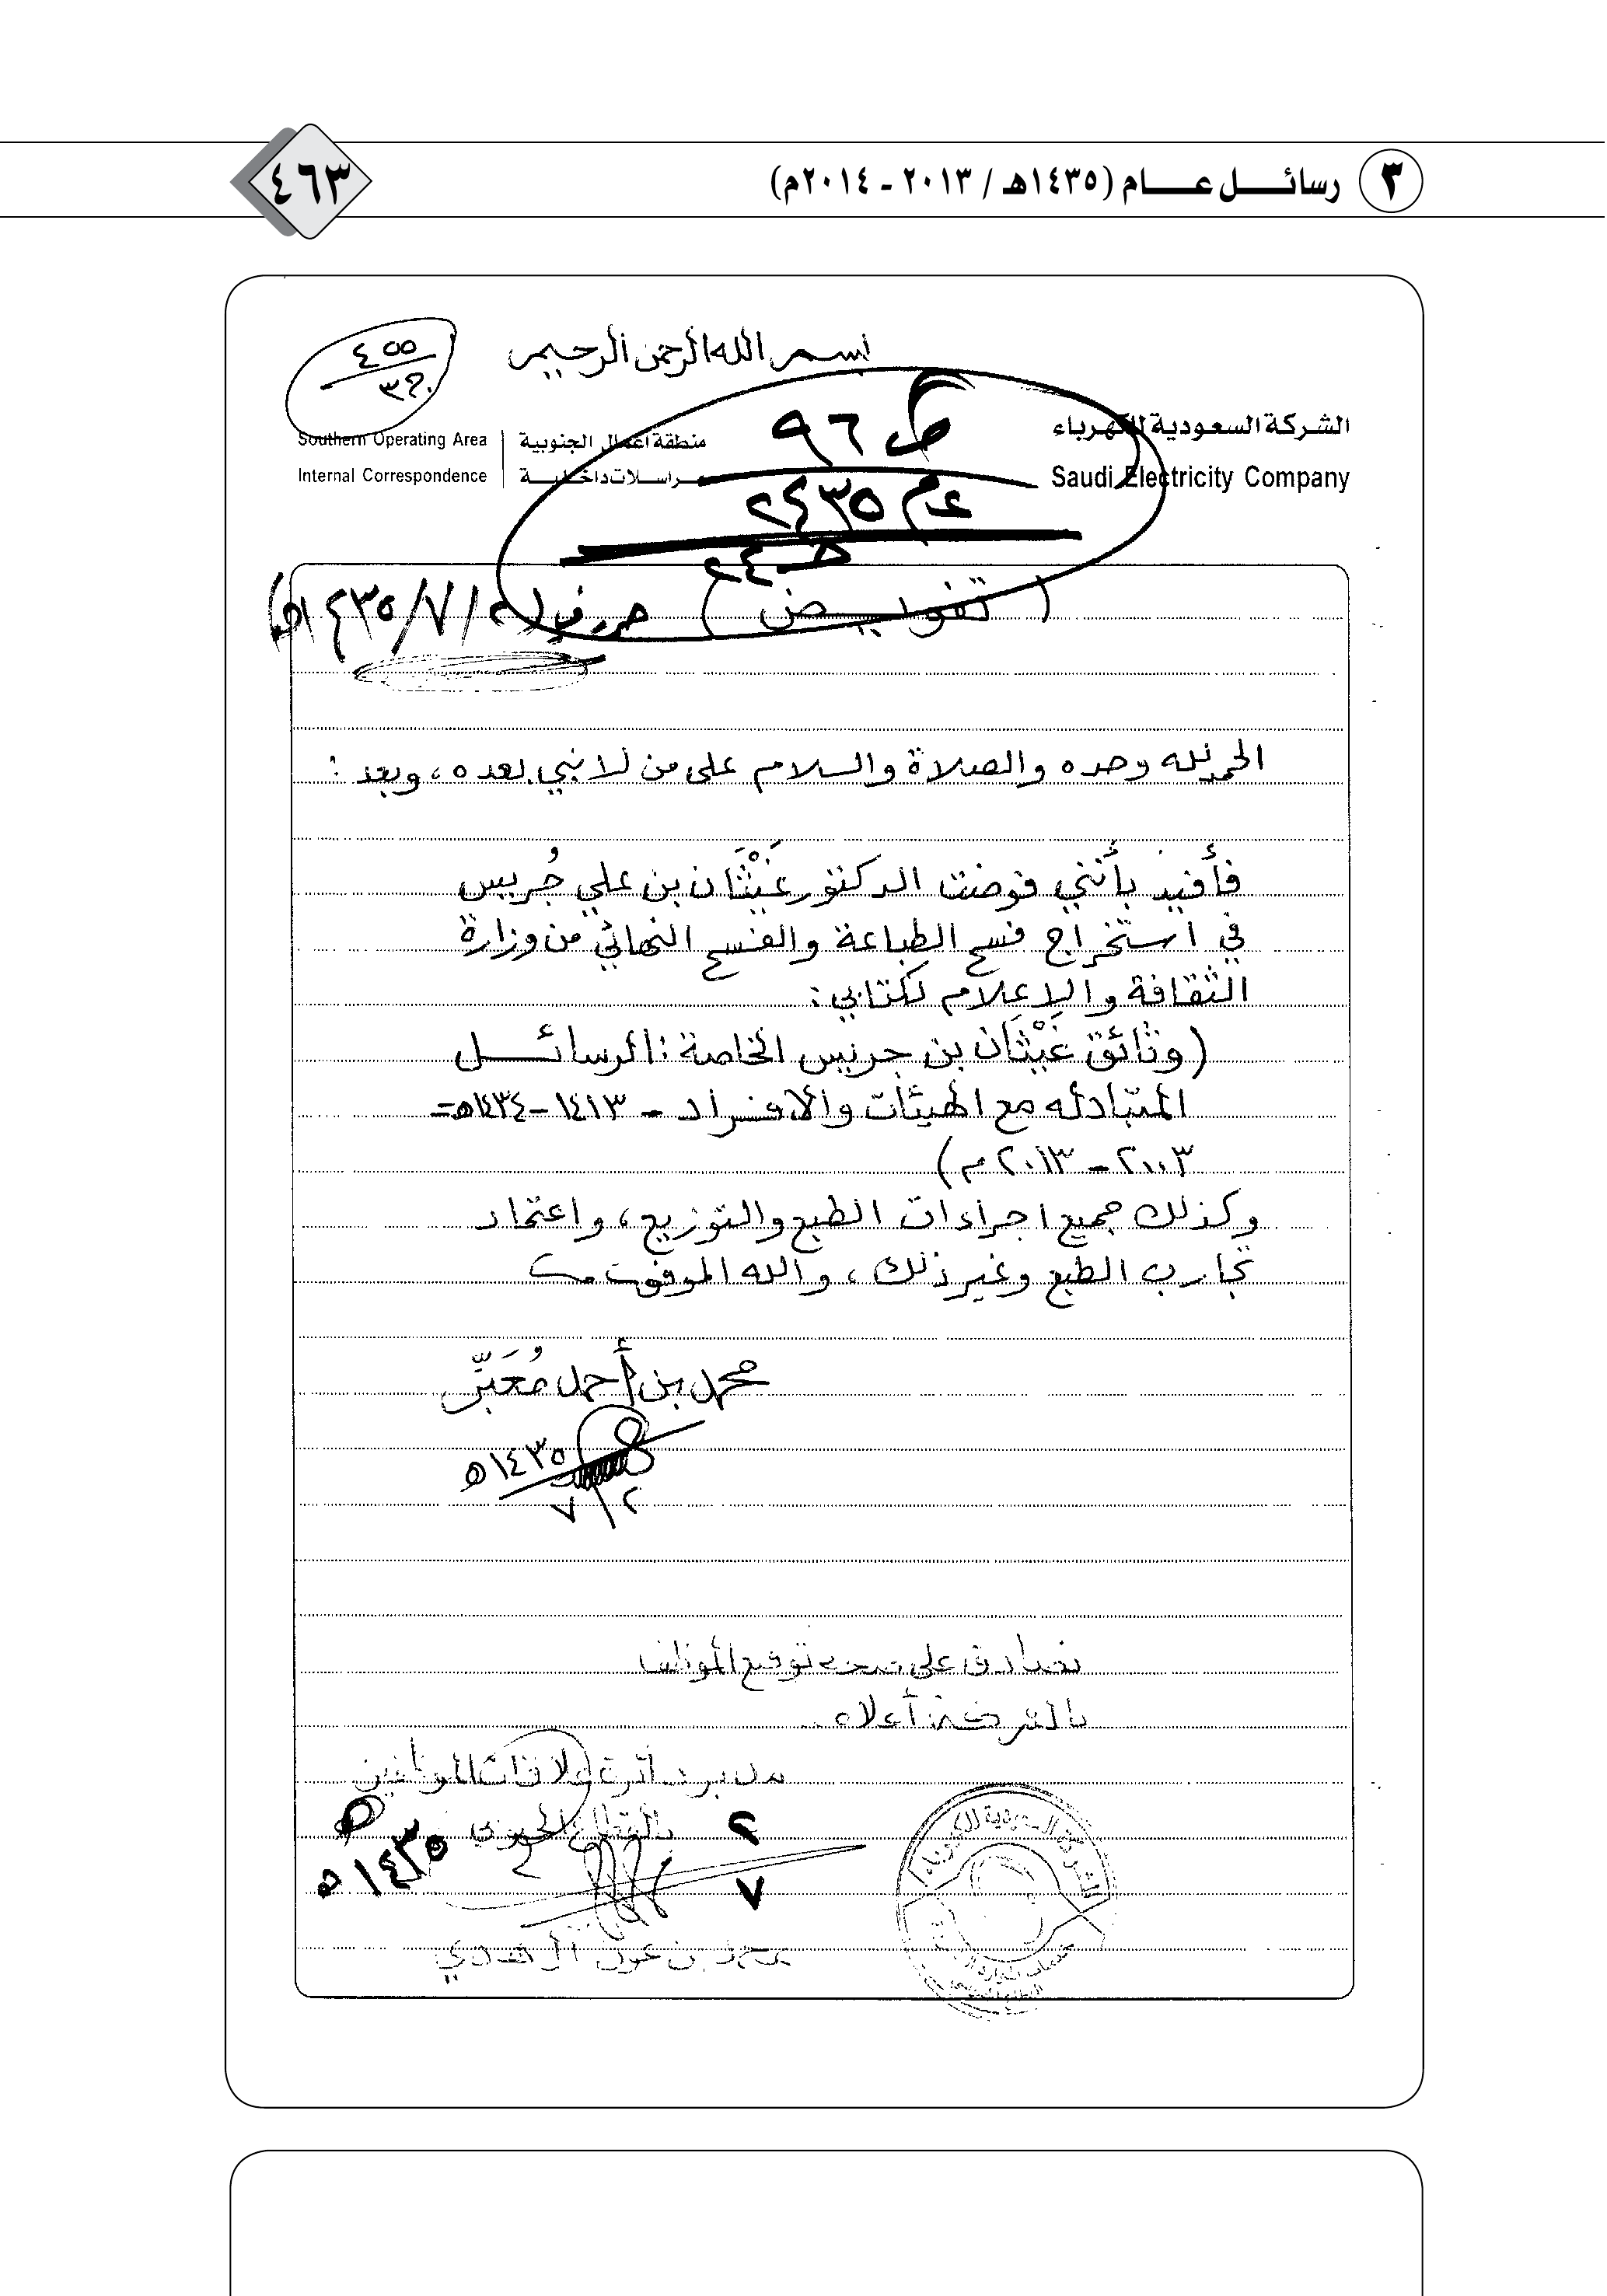 ٣ رسائل عام (١٤٣٥هـ / ٢٠١٣ - ٢٠١٤م)
٤٦٣
بسم الله الرحمن الرحيم
٤٥٥
الشركة السعودية للكهرباء
Saudi Electricity Company
منطقة اعمال الجنوبية
Southern Operating Area
مراسلات داخلية
Internal Correspondence
ص ٩٦
(تفويض)
الحمد لله وحده والصلاة والسلام على من لا نبي بعده، وبعد:
فأفيد بأنني فوضت الدكتور غَيْثَان بن علي جُريس
في استخراج فسح الطباعة والفسح النهائي من وزارة
الثقافة والإعلام لكتابي:
(وثائق غَيْثَان بن جريس الخاصة: الرسائل
المتبادله مع الهيئات والأفراد - ١٤١٣-١٤٣٤هـ=
٢٠٠٣-٢٠١٣م)
وكذلك جميع اجراءات الطبع والتوزيع، واعتماد
تجارب الطبع وغير ذلك، والله الموفق
محمد بن أحمد مُعَبِّر
١٤٣٥ه
٢/٧
نصادق على صحة توقيع الموظف
بالشركة أعلاه
مدير دائرة علاقات الموظفين
بالقطاع الجنوبي
٢
٧
١٤٣٥ه
الشركة السعودية للكهرباء